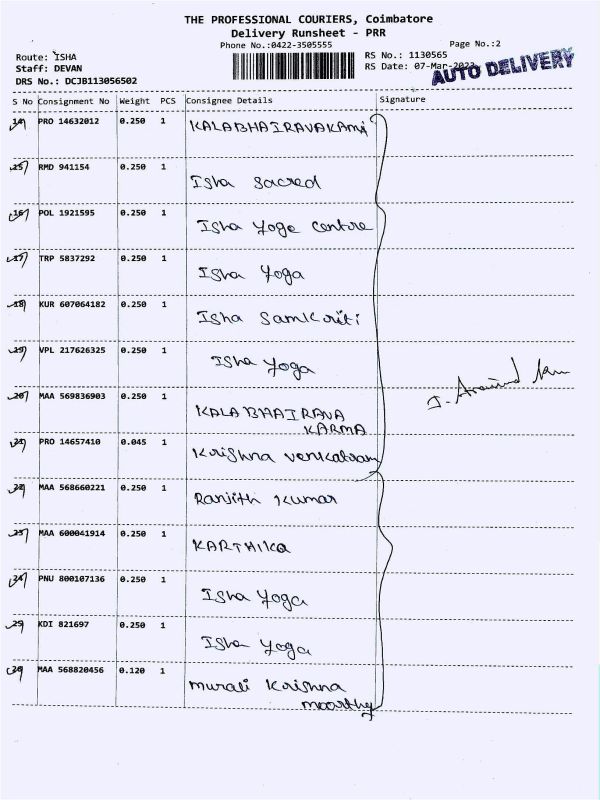 THE PROFESSIONAL COURIERS, Coimbatore
Delivery Runsheet - PRR
Phone No.:0422-3505555
Page No.:2
Route: ISHA
Staff: DEVAN
DRS No.: DCJB113056502
RS No.: 1130565
RS Date: 07-Mar-2023
AUTO DELIVERY
S No Consignment No Weight PCS Consignee Details Signature
14 PRO 14632012 0.250 1 KALABHAIRAVAKAMI
15 RMD 941154 0.250 1 Isha Sacred
16 POL 1921595 0.250 1 Isha Yoge Centre
17 TRP 5837292 0.250 1 Isha Yoga
18 KUR 607064182 0.250 1 Isha Samkriti
19 VPL 217626325 0.250 1 Isha Yoga
20 MAA 569836903 0.250 1 KALABHAIRAVA
KARMA
21 PRO 14657410 0.045 1 Krishna venkatram
22 MAA 568660221 0.250 1 Ranjith Kumar
23 MAA 600041914 0.250 1 KARTHIKa
24 PNU 800107136 0.250 1 Isha Yoga
25 KDI 821697 0.250 1 Isha Yoga
26 MAA 568820456 0.120 1 Murali Krishna
moorthy